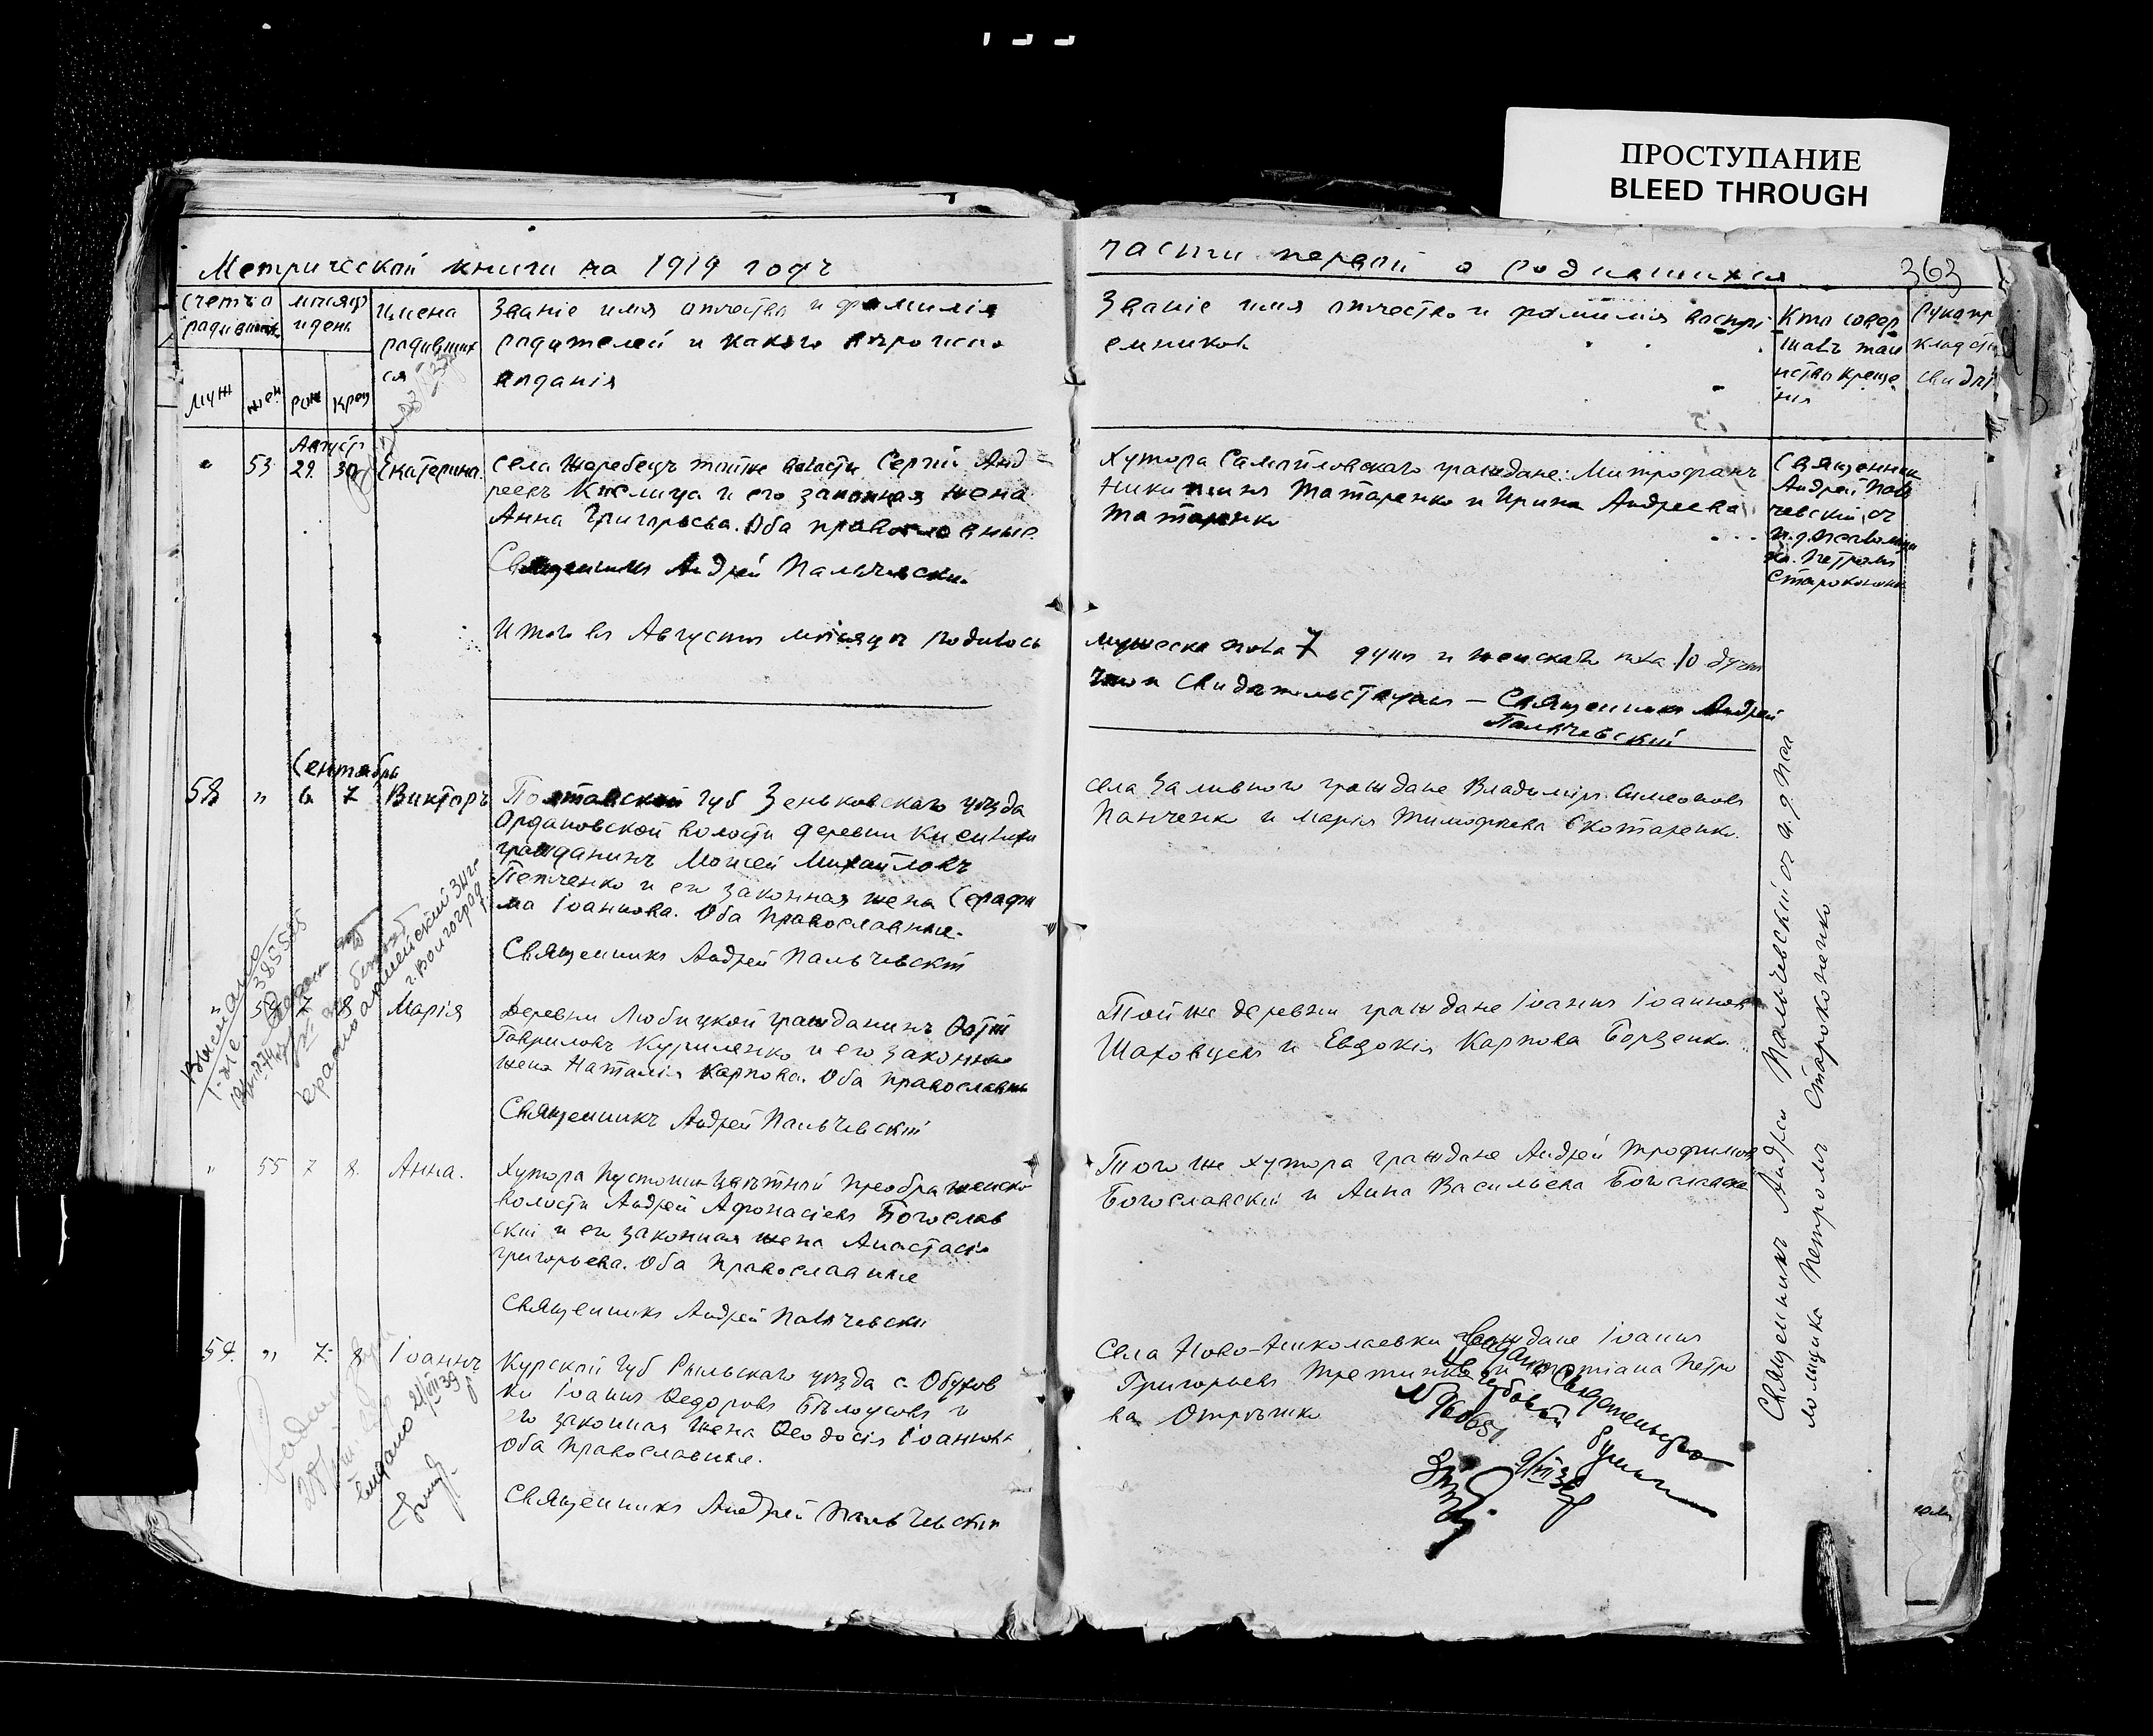 ПРОСТУПАНИЕ
BLEED THROUGH
Метрической книги на 1919 годъ
части первой о родившихся
363
счетъ
родившихся
мѣсяцъ
и день
имена
родивших
ся
Званіе имя отчество и фамилія
родителей и какого вѣроиспо
вѣданія
муж
жен
рож
крещ
Званіе имя отчество и фамилія воспрі
емниковъ
Кто совер
шалъ таи
нство креще
нія
Рукопр
клад
свидѣт
Август
" 53 29. 30 Екатерина.
села Жеребецъ тойже волости Сергій Анд-
реевъ Кмелица и его законная жена
Анна Григорьева. Оба православные.
Священникъ Андрей Пальчевскій
Хутора Самойловскаго граждане: Митрофанъ
Никитинъ Татаренко и Ирина Андреева
Татаренко
Священник
Андрей Паль
чевскій съ
и.д. Псаломщи
Петромъ
Староконенк
Итого въ Августѣ мѣсяцѣ родилось
мужеска пола 7 душъ и женскаго пола 10 душъ
Свидѣтельствую — Священникъ Андрей
Пальчевскій
Сентябрь
58 " 6 7 Викторъ
Полтавской губ Зеньковскаго уѣзда
волости деревни
гражданинъ Моисей Михайловъ
Петченко и его законная жена Серафи
ма Іоаннова. Оба Православные.
Священникъ Андрей Пальчевскій
села Заливного граждане Владиміръ Симеоновъ
Панченко и Марія Тимофѣева Скотаренко.
Выслано
385555
Красноармейский ЗАГС
г. Волгоград
" 54 7 8 Марія
Деревни Любицкой гражданинъ
Гавриловъ Куриленко и его законная
жена Наталія Карпова. Оба православны
Священникъ Андрей Пальчевскій
Той же деревни граждане Іоаннъ Іоанновъ
Шаховцевъ и Евдокія Карпова Борзенко.
" 55 7 8. Анна.
Хутора Преображенско
волости Андрей Афонасіевъ Богослав
скій и его законная жена Анастасія
Григорьева. Оба Православные
Священникъ Андрей Пальчевскій
Того же хутора граждане Андрей Трофимовъ
Богославскій и Анна Васильева Богославска
59. " 7. 8. Іоаннъ
Курской губ Рыльскаго уѣзда с. Обухов
ки Іоаннъ Ѳедоровъ Бѣлоусовъ и
его законная жена Ѳеодосія Іоаннова
Оба Православные.
Священникъ Андрей Пальчевскій
Села Ново-Николаевки граждане Іоаннъ
Григорьевъ и Петро
ва
Свидетельство
Выдано 21/VII 39
Священникъ Андрей Пальчевскій съ и. д. Пса
ломщика Петромъ Староконенко